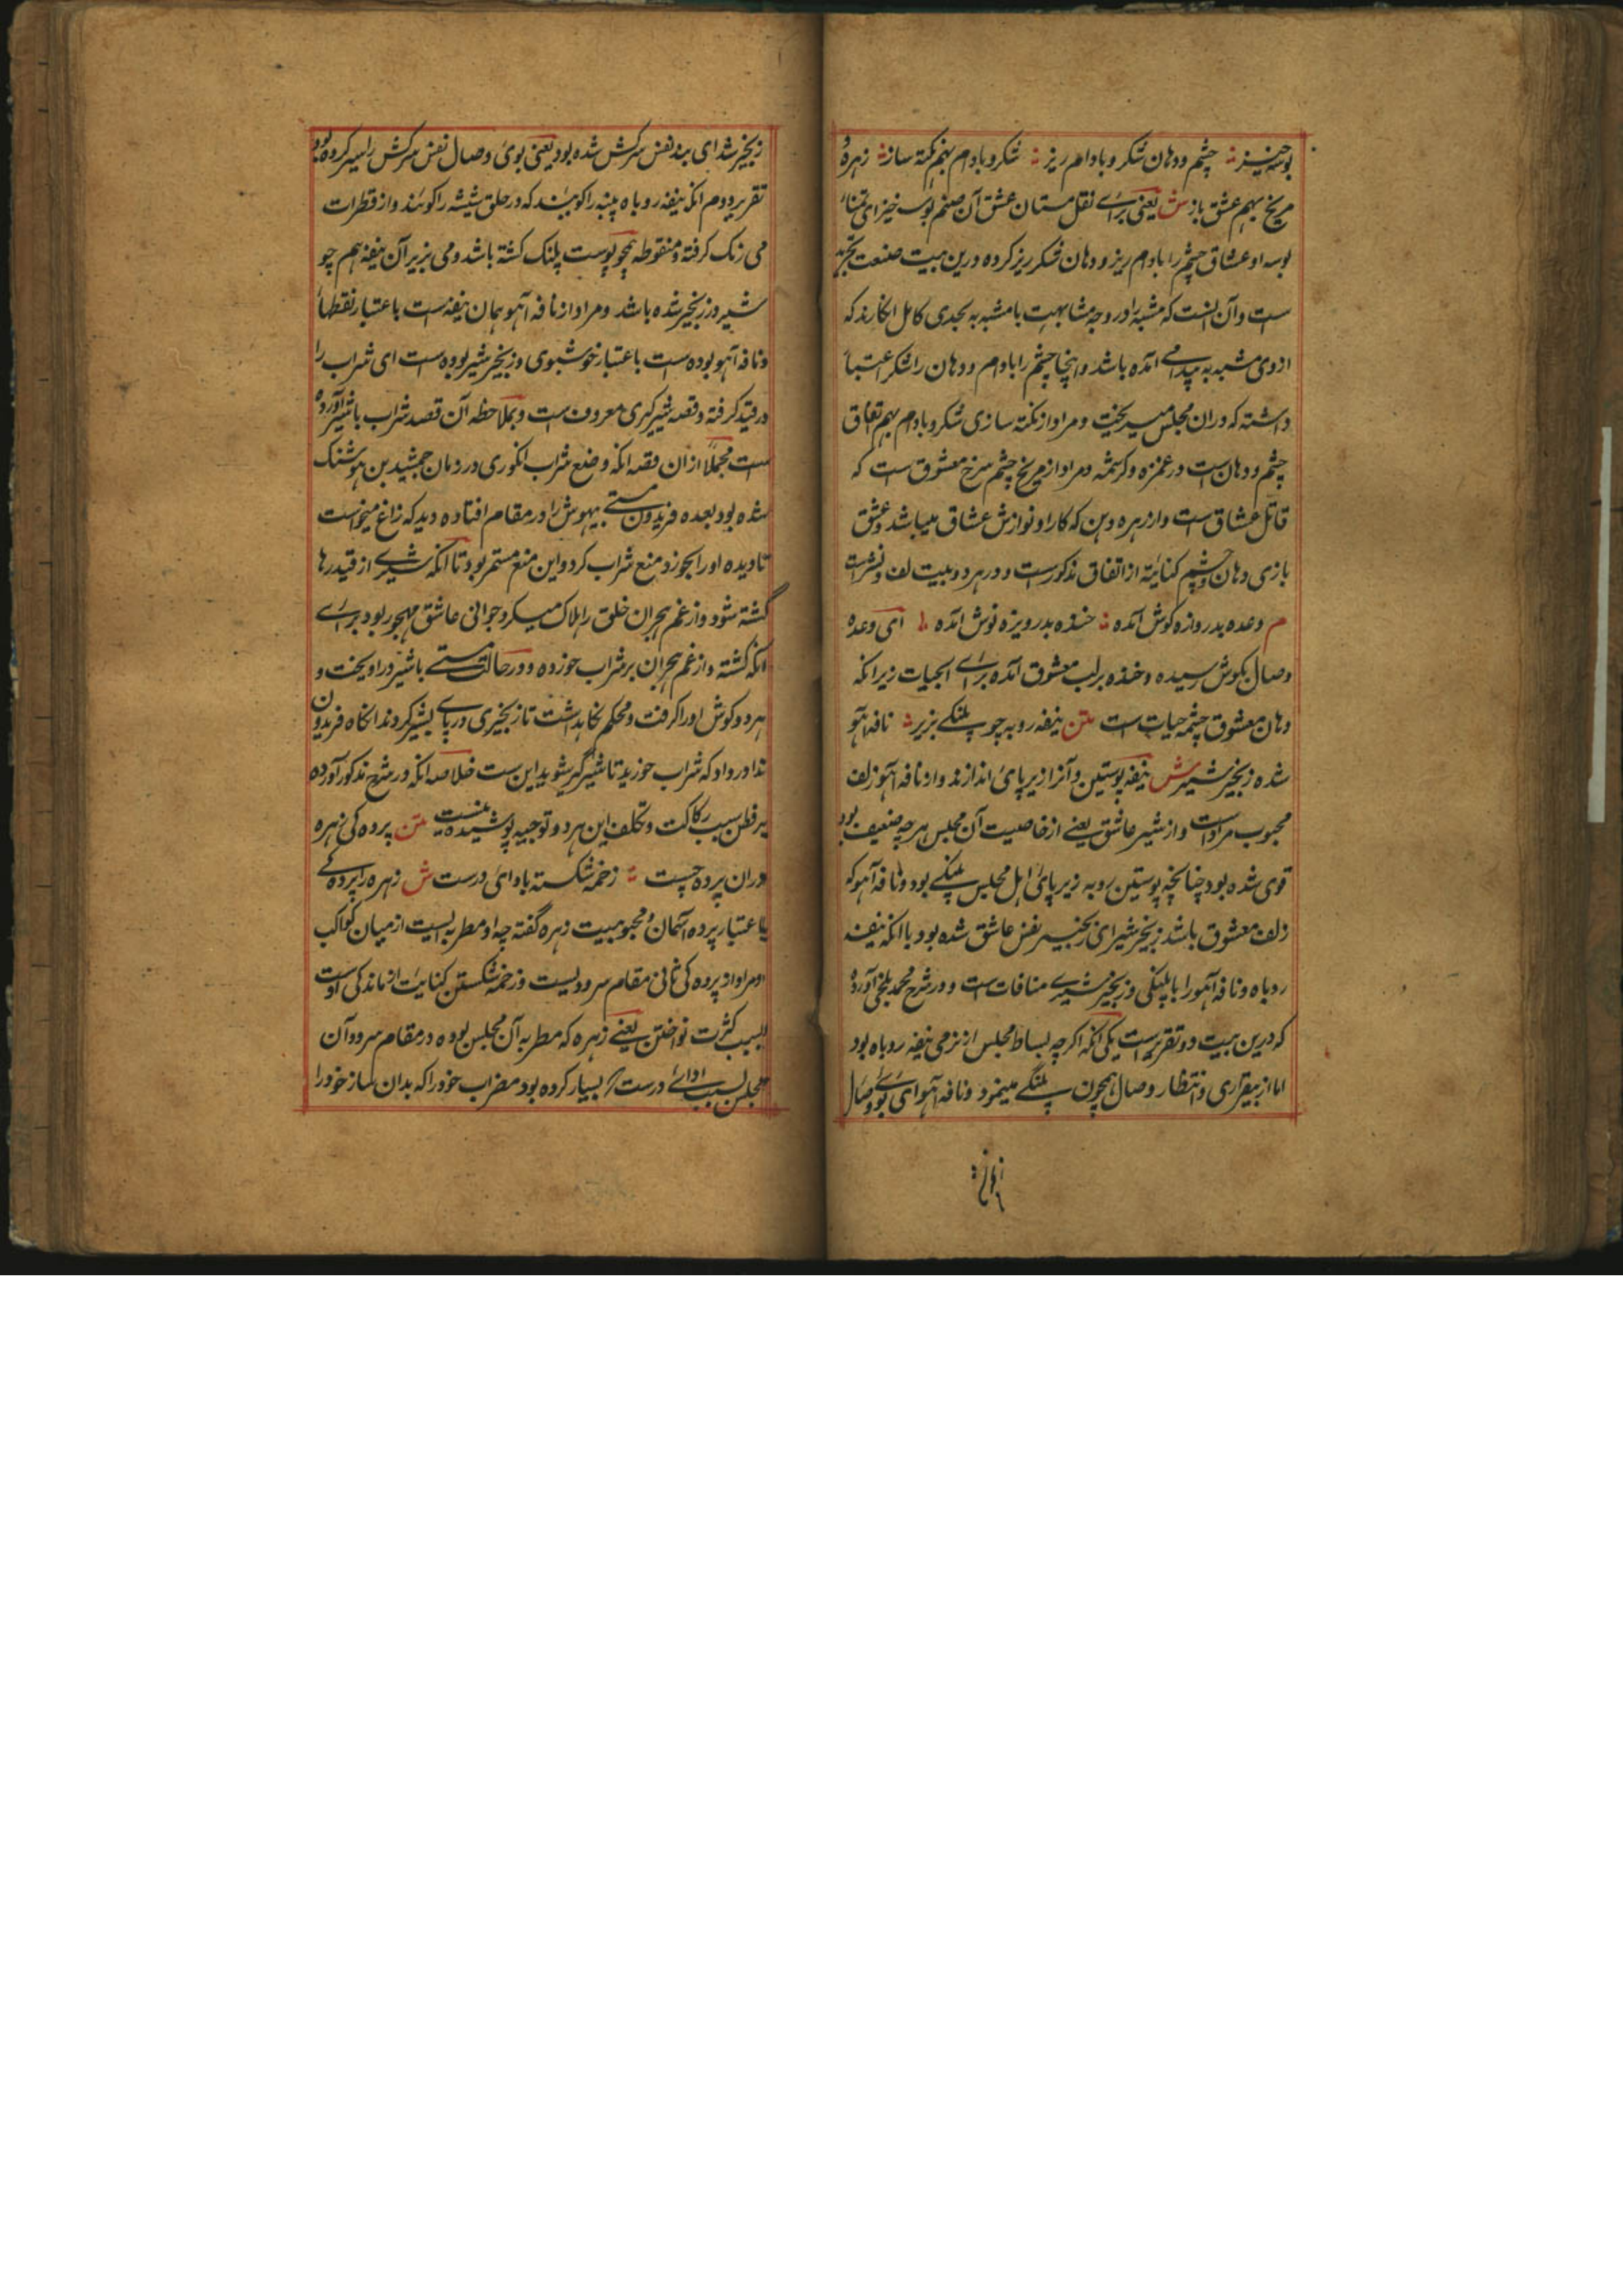 بوسه خیز چشم و دهان شکر و بادام ریز شکر و بادام بهم نکته ساز زهره و
مریخ بهم عشق باز ش یعنی برای نقل مستان عشق آن صنم بوسه خیز ای تمنای
بوسه او عشاق چشم را بادام ریز و دهان شکر ریز کرده درین بیت صنعت تجرید
است و آن انست که مشبه را در وجه مشابهت با مشبه به بحدی کامل انکارند که
ازوی مشبه به پیدا می آمده باشد و اینجا چشم را بادام و دهان را شکر اعتبار
داشته که دران مجلس میریخت و مراد از نکته سازی شکر و بادام بهم اتفاق
چشم و دهان است در غمزه و کرشمه و مراد از مریخ چشم سرخ معشوق است که
قاتل عشاق است و از زهره دهن که کار او نوازش عشاق میباشد و عشق
بازی دهان و چشم کنایة از اتفاق مذکور است و در هر دو بیت لف و نشر است
م وعده بدروازه کوش آمده خنده بدریوزه نوش آمده ای وعده
وصال بکوش رسیده و خنده بر لب معشوق آمده برای الحیات زیرانکه
دهان معشوق چشمه حیات است متن نیفه روبه چو پلنکی بزیر نافه آهو
شده زنجیر شیر ش نیفه پوستین و آنرا زیر پای اندازند و از نافه آهو زلف
محبوب مراد است و از شیر عاشق یعنی از خاصیت آن مجلس هر چه ضعیف بود
قوی شده بود چنانچه پوستین روبه زیر پای اهل مجلس پلنکی بود و نافه آهو که
زلف معشوق باشد زنجیر شیر ای زنجیر نفس عاشق شده بود با انکه نیفه
روباه و نافه آهو را با پلنکی و زنجیر شیری منافات است و در شرح محمد بلخی آورده
که درین بیت دو تقریر است یکی انکه اکرچه بساط مجلس از نرمی نیفه روباه بود
اما از بیقراری و انتظار وصال همچون پلنکی مینمود و نافه آهو ای بوی وصال
زنجیر شد ای بند نفس سرکش شده بود یعنی بوی وصال نفس سرکش را اسیر کرده بود
تقریر دوم انکه نیفه روباه پنبه را کویند که در حلق شیشه را کویند و از قطرات
می رنک کرفته و منقوطه همچو پوست پلنک کشته باشد و می بزیر آن نیفه هم چو
شیر در زنجیر شده باشد و مراد از نافه آهو همان نیفه است باعتبار نقطها
و نافه آهو بوده است باعتبار خوشبوی و زنجیر شیر بوده است ای شراب را
در قید کرفته و قصه شیر کیری معروف است و بملاحظه آن قصد شراب با شیر آورده
است مجملا ازان قصه انکه وضع شراب انکوری در زمان جمشید بن هوشنک
شده بود بعده فریدون مستی بیهوش را در مقام افتاده دید که زاغ میخواست
تا دیده او را بخورد منع شراب کرد و این منع مستمر بود تا انکه شیری از قید رها
گشته شود و از غم هجران خلق را هلاک میکرد جوانی عاشق مهجور بود برای
انکه کشته و از غم هجران بر شراب خورده و در حالت مستی با شیر در اویخت و
هر دو کوش او را کرفت و محکم نکاهداشت تا زنجیری در پای شیر کردند انکاه فریدون
ندا در داد که شراب خورید تا شیر گیر شوید این ست خلاصه انکه در شرح مذکور آورده
بر فطن سبب رکاکت و تکلف این هر دو توجیه پوشیده نیست متن پرده کی زهره
دران پرده چست زخمه شکسته باوای درست ش زهره را پرده کی
باعتبار پرده آسمان و محبوبیت زهره گفته چه او مطربه ایست از میان کواکب
و مراد از پرده کی ثانی مقام سرودیست و زخمه شکستن کنایت از ماندکی است
بسبب کثرت نواختن یعنی زهره که مطربه آن مجلس بوده در مقام سرود آن
مجلس بسبب ادای درست بسیار کرده بود مضراب خود را که بدان ساز خود را